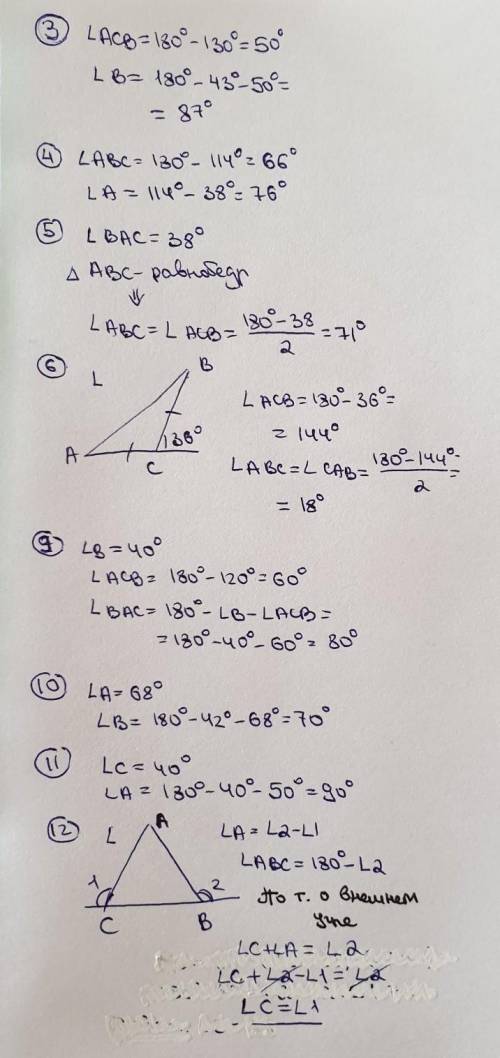 3 ∠ACB = 180° - 130° = 50°
∠B = 180° - 43° - 50° =
= 87°
4 ∠ABC = 180° - 114° = 66°
∠A = 114° - 38° = 76°
5 ∠BAC = 38°
△ ABC - равнобедр
⇓
∠ABC = ∠ACB = (180° - 38)/2 = 71°
6 ∠
A B C 136°
∠ACB = 180° - 36° =
= 144°
∠ABC = ∠CAB = (180° - 144°)/2 =
= 18°
9 ∠B = 40°
∠ACB = 180° - 120° = 60°
∠BAC = 180° - ∠B - ∠ACB =
= 180° - 40° - 60° = 80°
10 ∠A = 68°
∠B = 180° - 42° - 68° = 70°
11 ∠C = 40°
∠A = 180° - 40° - 50° = 90°
12 ∠
A
1 2
C B
∠A = ∠2 - ∠1
∠ABC = 180° - ∠2
По т. о внешнем
угле
∠C + ∠A = ∠2
∠C + ∠2 - ∠1 = ∠2
∠C = ∠1